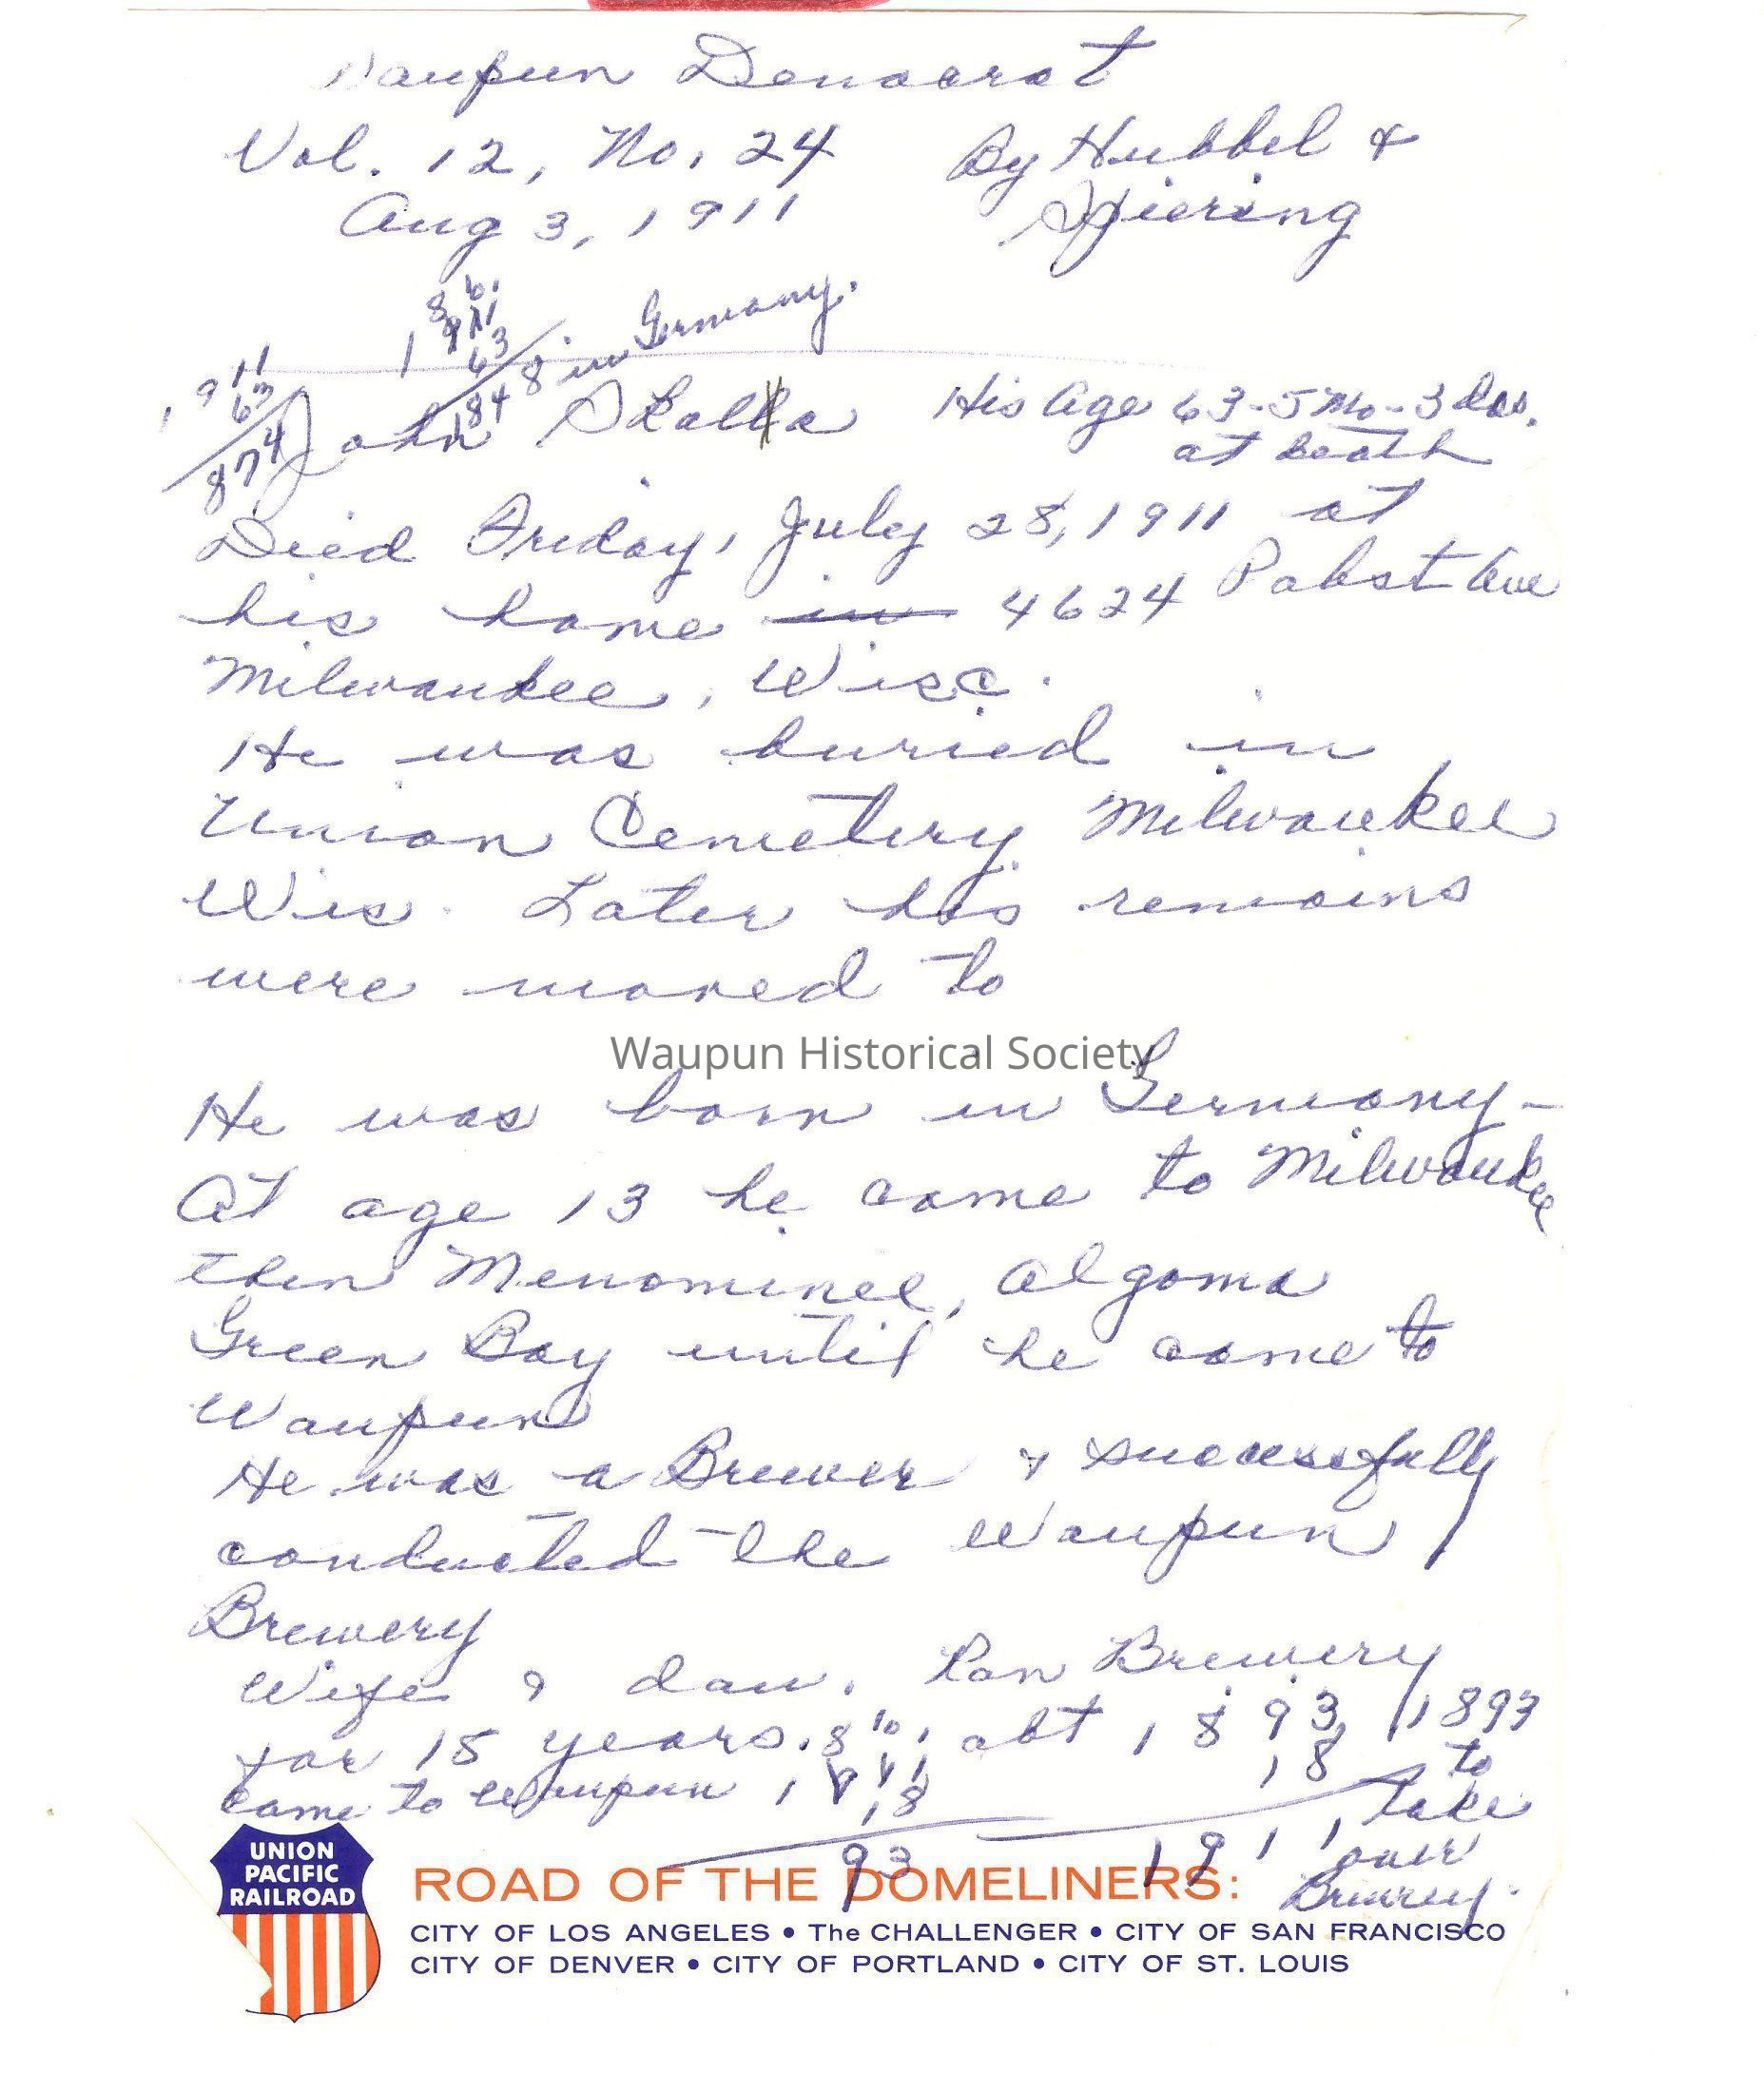 Waupun Democrat
Vol. 12, No. 24 By Hubbel &
Aug 3, 1911 Spiering
in Germany.
John Skalka His Age 63-5 Mo-3 das.
at death
Died Friday, July 28, 1911 at
his home in 4624 Pabst Ave
Milwaukee, Wisc.
He was buried in
Union Cemetery Milwaukee
Wis. Later his remains
were moved to
Waupun Historical Society
He was born in Germany-
At age 13 he came to Milwaukee
then Menominee, Algoma
Green Bay until he came to
Waupun
He was a Brewer & successfully
conducted the Waupun
Brewery
Wife & dau. Ran Brewery
for 18 years. abt 1893 1893
came to Waupun 18 18 to
take
93 1911 over
Brewery.
UNION
PACIFIC
RAILROAD
ROAD OF THE DOMELINERS:
CITY OF LOS ANGELES • The CHALLENGER • CITY OF SAN FRANCISCO
CITY OF DENVER • CITY OF PORTLAND • CITY OF ST. LOUIS